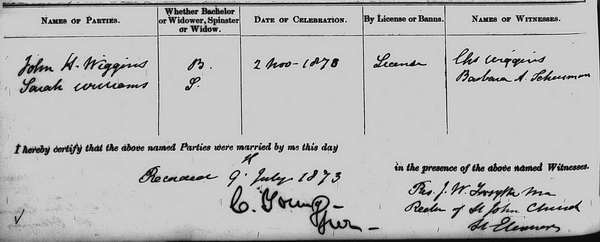 NAMES OF PARTIES. Whether Bachelor or Widower, Spinster or Widow. DATE OF CELEBRATION. By License or Banns. NAMES OF WITNESSES.
John H. Wiggins B. 2 Nov - 1873 License Chs Wiggins
Sarah Williams S. Barbara A. Schurman
I hereby certify that the above named Parties were married by me this day
in the presence of the above named Witnesses.
Recorded 9th July 1873
C. Young
Thos. J. W. Forsythe
Rector of St John Church
St Eleanors